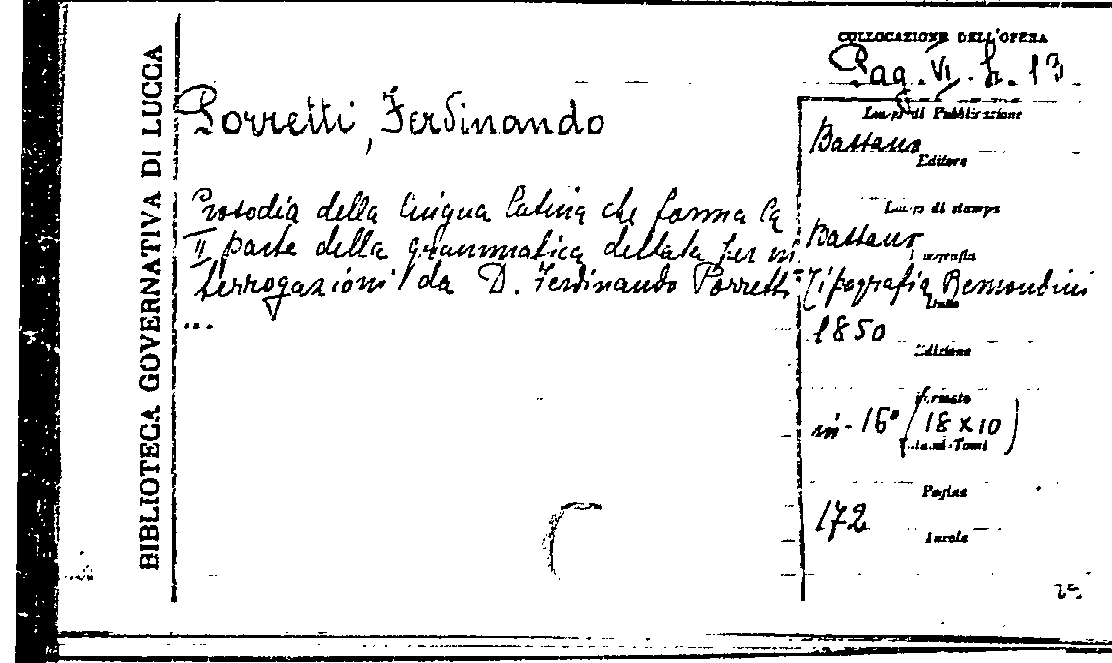 BIBLIOTECA GOVERNATIVA DI LUCCA
COLLOCAZIONE DELL'OPERA
Pag. VI. h. 13
Porretti, Ferdinando
Prosodia della lingua latina che forma la
II parte della grammatica dettata per in
terrogazioni da D. Ferdinando Porretti
...
Luogo di Pubblicazione
Bassano
Editore
Luogo di stampa
Bassano
Tipografia
Tipografia Remondini
1850
Edizione
Formato
in-16° (18 x 10)
Pagine
172
Tavole